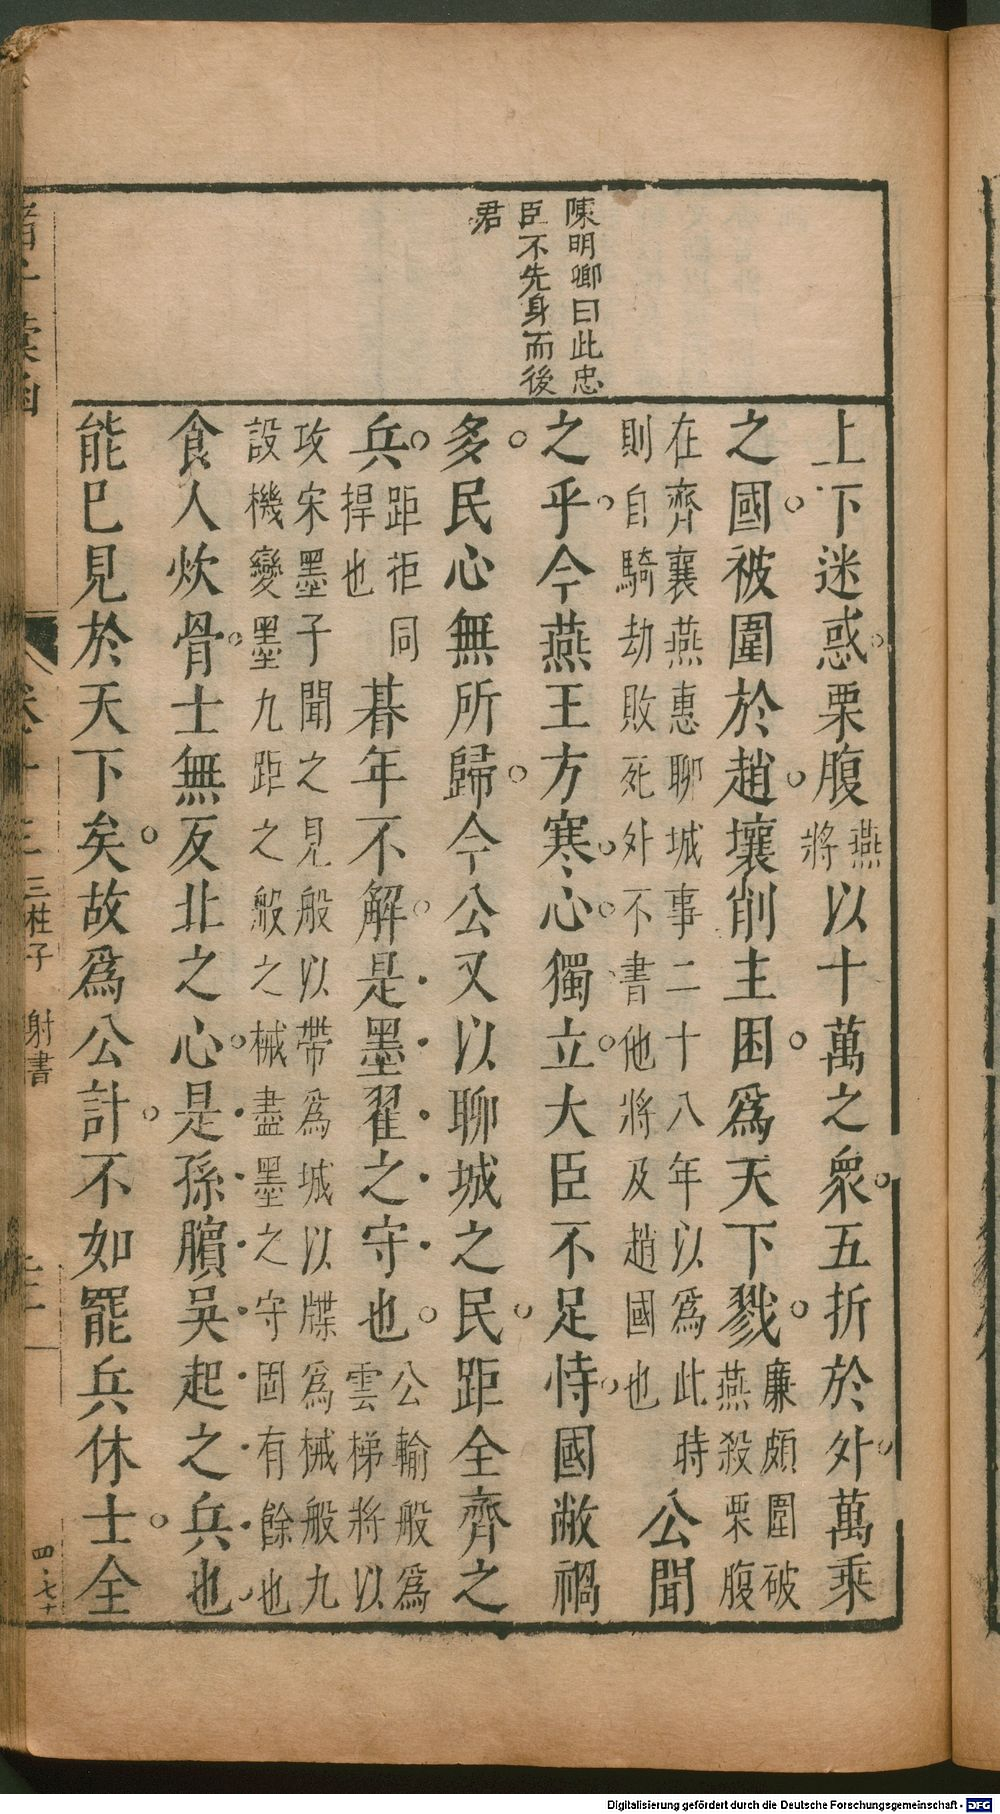 陳明卿曰此忠
臣不先身而後
君
上下迷惑栗腹燕將以十萬之衆五折於外萬乘
之國被圍於趙壤削主困爲天下戮廉頗圍破燕殺栗腹
在齊襄燕惠聊城事二十八年以爲此時
則自騎劫敗死外不書他將及趙國也
公聞
之乎今燕王方寒心獨立大臣不足恃國敝禍
多民心無所歸今公又以聊城之民距全齊之
兵距拒同捍也朞年不解是墨翟之守也公輸般爲雲梯將以
攻宋墨子聞之見般以帶爲城以牒爲械般九
設機變墨九距之般之械盡墨之守固有餘也
食人炊骨士無反北之心是孫臏吳起之兵也
能已見於天下矣故爲公計不如罷兵休士全
三柱子 射書
四七十
Digitalisierung gefördert durch die Deutsche Forschungsgemeinschaft - DFG